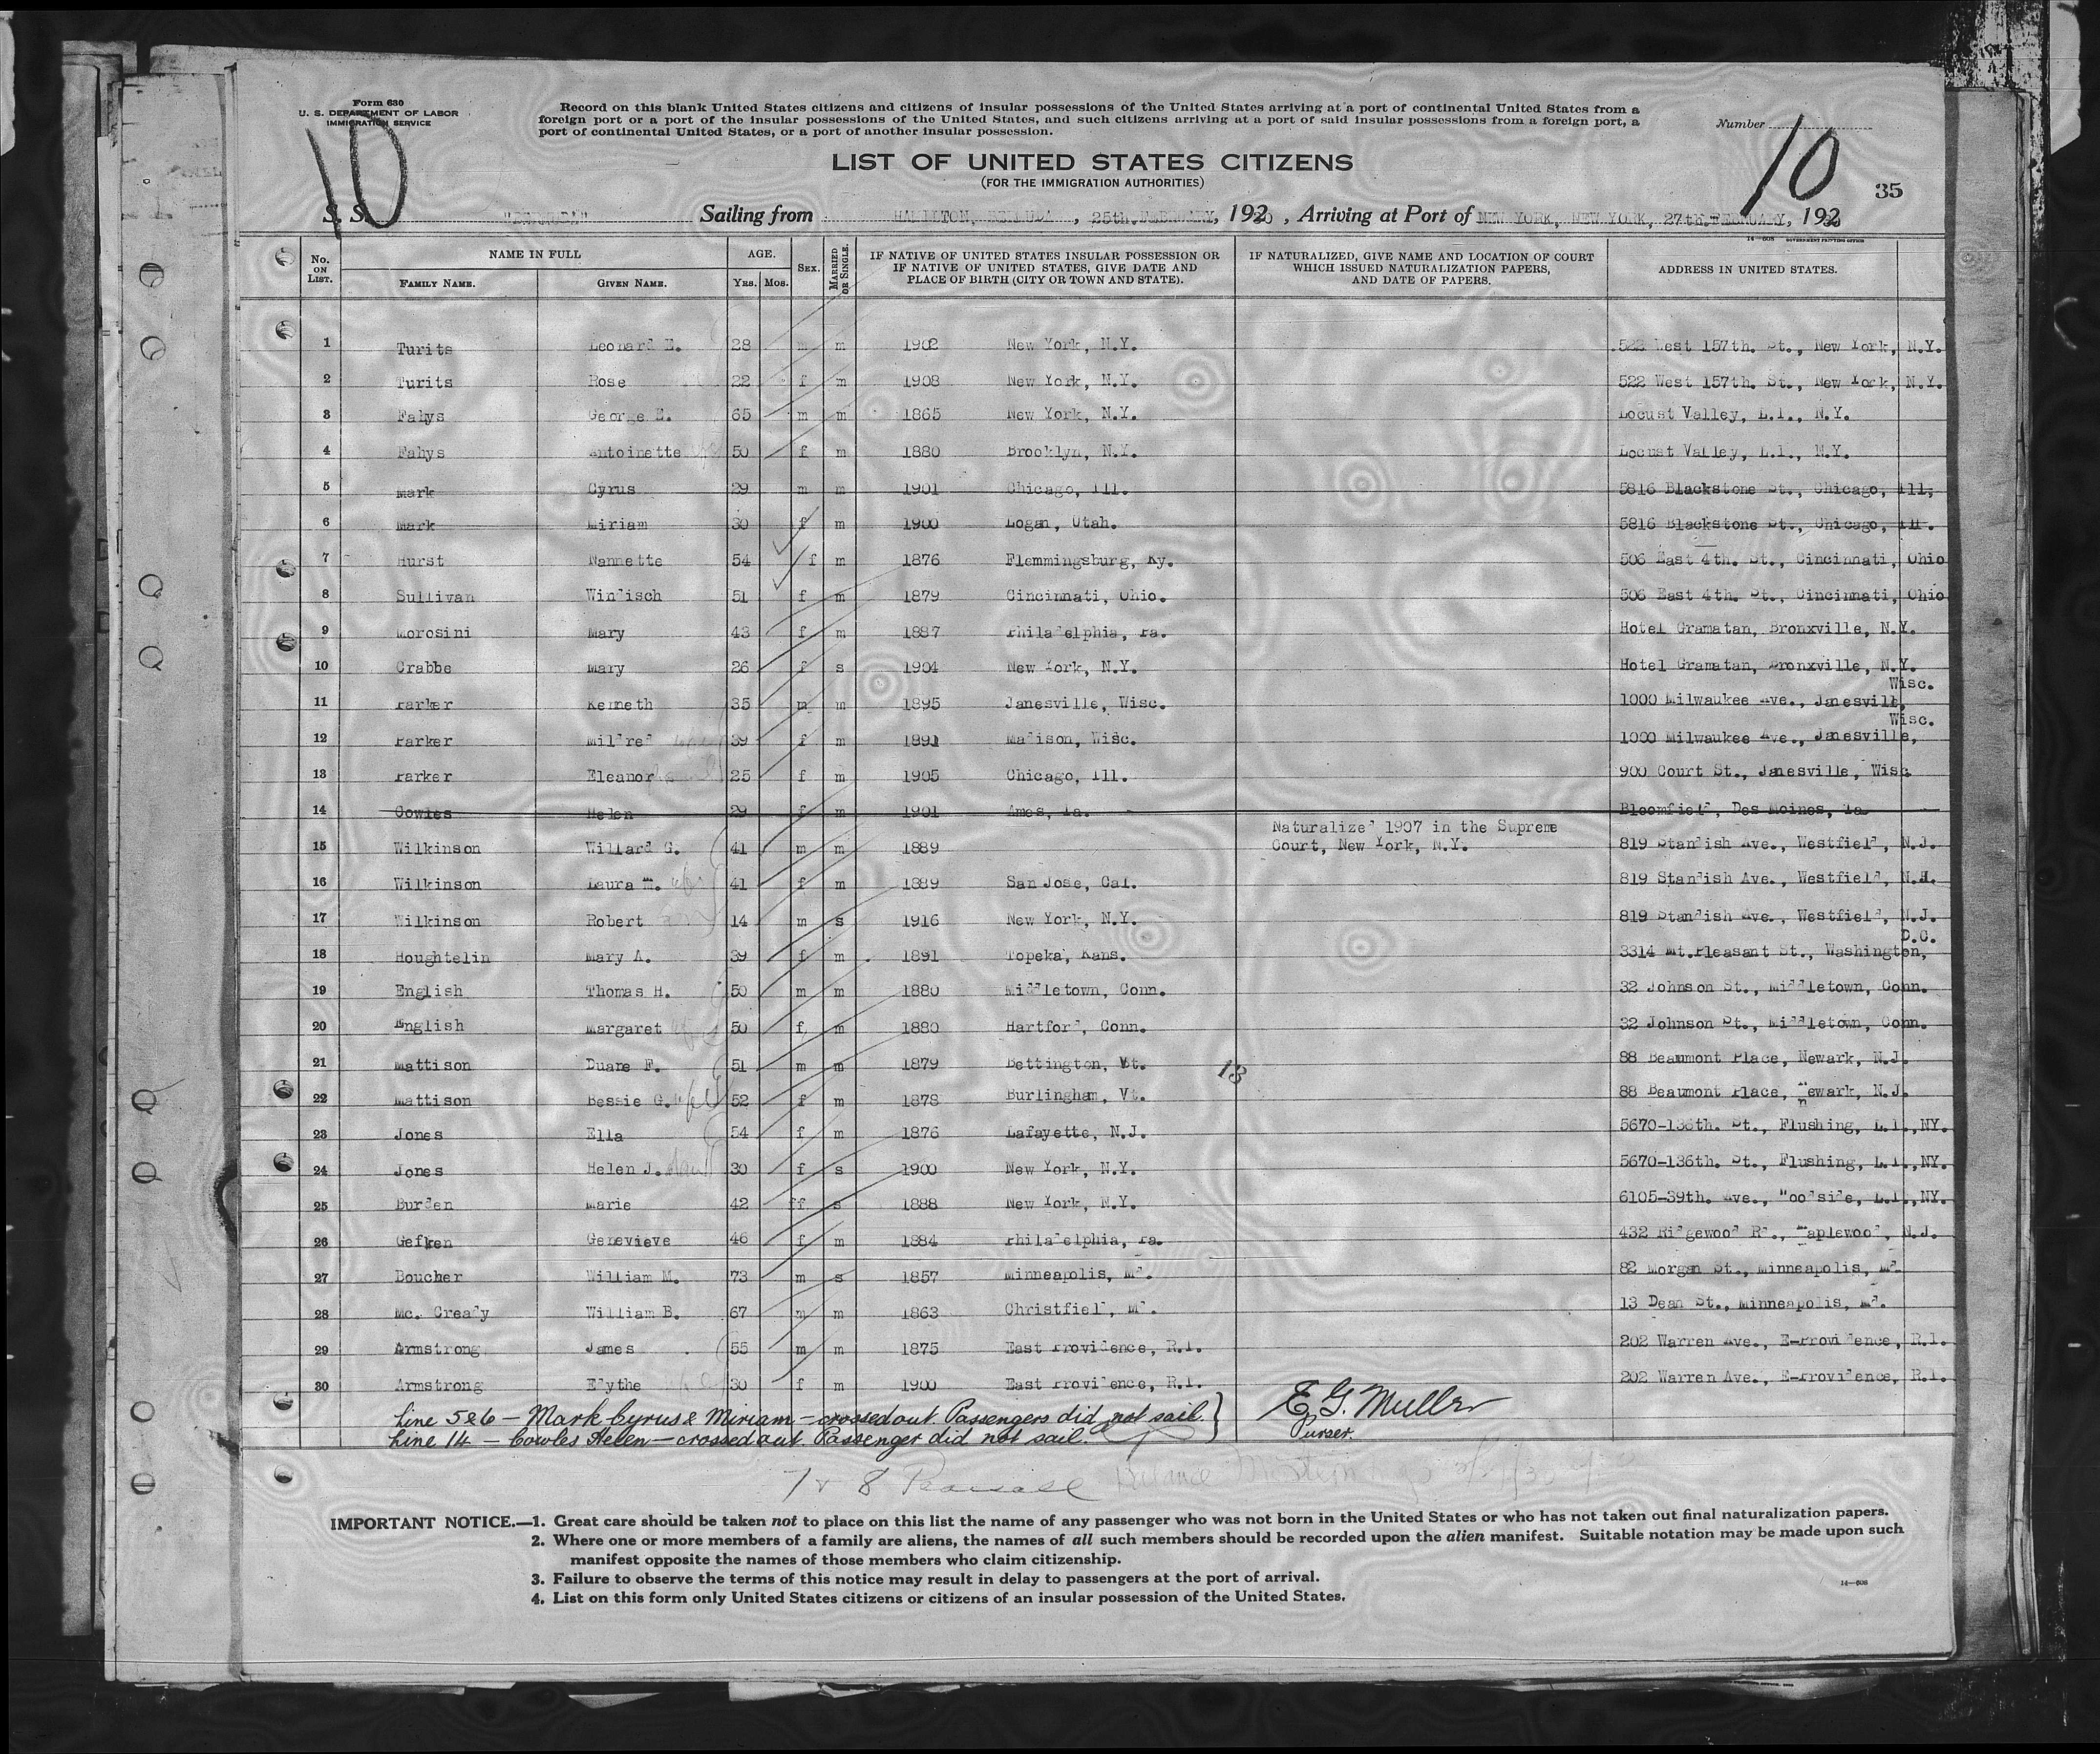 Form 630
U. S. DEPARTMENT OF LABOR
IMMIGRATION SERVICE
10
Record on this blank United States citizens and citizens of insular possessions of the United States arriving at a port of continental United States from a
foreign port or a port of the insular possessions of the United States, and such citizens arriving at a port of said insular possessions from a foreign port, a
port of continental United States, or a port of another insular possession.
Number 10
35
LIST OF UNITED STATES CITIZENS
(FOR THE IMMIGRATION AUTHORITIES)
S. S. Sailing from HAMILTON, BERMUDA, 25th. FEBRUARY, 1930, Arriving at Port of NEW YORK, NEW YORK, 27th. FEBRUARY, 1930
14—608 GOVERNMENT PRINTING OFFICE
No. ON LIST. NAME IN FULL FAMILY NAME. GIVEN NAME. AGE. YRS. MOS. SEX. MARRIED OR SINGLE. IF NATIVE OF UNITED STATES INSULAR POSSESSION OR IF NATIVE OF UNITED STATES, GIVE DATE AND PLACE OF BIRTH (CITY OR TOWN AND STATE). IF NATURALIZED, GIVE NAME AND LOCATION OF COURT WHICH ISSUED NATURALIZATION PAPERS, AND DATE OF PAPERS. ADDRESS IN UNITED STATES.
1 Turits Leonard E. 28 m m 1902 New York, N.Y. 522 West 157th. St., New York, N.Y.
2 Turits Rose 22 f m 1908 New York, N.Y. 522 West 157th. St., New York, N.Y.
3 Fahys George E. 65 m m 1865 New York, N.Y. Locust Valley, L.I., N.Y.
4 Fahys Antoinette 50 f m 1880 Brooklyn, N.Y. Locust Valley, L.I., N.Y.
5 Mark Cyrus 29 m m 1901 Chicago, Ill. 5816 Blackstone St., Chicago, Ill,
6 Mark Miriam 30 f m 1900 Logan, Utah. 5816 Blackstone St., Chicago, Ill.
7 Hurst Nannette 54 f m 1876 Flemmingsburg, Ky. 506 East 4th. St., Cincinnati, Ohio
8 Sullivan Windisch 51 f m 1879 Cincinnati, Ohio. 506 East 4th. St., Cincinnati, Ohio
9 Morosini Mary 43 f m 1887 Philadelphia, Pa. Hotel Gramatan, Bronxville, N.Y.
10 Crabbe Mary 26 f s 1904 New York, N.Y. Hotel Gramatan, Bronxville, N.Y.
11 Parker Kenneth 35 m m 1895 Janesville, Wisc. 1000 Milwaukee Ave., Janesvill, Wisc.
12 Parker Mildred wife 39 f m 1891 Madison, Wisc. 1000 Milwaukee Ave., Janesville, Wisc.
13 Parker Eleanor 25 f m 1905 Chicago, Ill. 900 Court St., Janesville, Wisc.
14 Cowles Helen 29 f m 1901 Ames, Ia. Bloomfield, Des Moines, Ia
15 Wilkinson Willard G. 41 m m 1889 Naturalized 1907 in the Supreme Court, New York, N.Y. 819 Standish Ave., Westfield, N.J.
16 Wilkinson Laura M. wife 41 f m 1889 San Jose, Cal. 819 Standish Ave., Westfield, N.H.
17 Wilkinson Robert 14 m s 1916 New York, N.Y. 819 Standish Ave., Westfield, N.J.
18 Houghtelin Mary A. 39 f m 1891 Topeka, Kans. 3314 Mt.Pleasant St., Washington, D.C.
19 English Thomas H. 50 m m 1880 Middletown, Conn. 32 Johnson St., Middletown, Conn.
20 English Margaret wife 50 f m 1880 Hartford, Conn. 32 Johnson St., Middletown, Conn.
21 Mattison Duane F. 51 m m 1879 Bettington, Vt. 13 88 Beaumont Place, Newark, N.J.
22 Mattison Bessie G. wife 52 f m 1878 Burlingham, Vt. 88 Beaumont Place, Newark, N.J.
23 Jones Ella 54 f m 1876 Lafayette, N.J. 5670-136th. St., Flushing, L.I., NY.
24 Jones Helen J. dau 30 f s 1900 New York, N.Y. 5670-136th. St., Flushing, L.I., NY.
25 Burden Marie 42 ff s 1888 New York, N.Y. 6105-39th. Ave., Woodside, L.I., NY.
26 Gefken Genevieve 46 f m 1884 Philadelphia, Pa. 432 Ridgewood Rd., Maplewood, N.J.
27 Boucher William M. 73 m s 1857 Minneapolis, Md. 82 Morgan St., Minneapolis, Md.
28 Mc. Cready William B. 67 m m 1863 Christfield, Md. 13 Dean St., Minneapolis, Md.
29 Armstrong James 55 m m 1875 East Providence, R.I. 202 Warren Ave., E-Providence, R.I.
30 Armstrong Edythe wife 30 f m 1900 East Providence, R.I. 202 Warren Ave., E-Providence, R.I.
Line 5&6 — Mark Cyrus & Miriam — crossed out. Passengers did not sail. } E. G. Muller
Line 14 — Cowles Helen — crossed out. Passenger did not sail. Purser.
7 & 8 Balance
IMPORTANT NOTICE.—1. Great care should be taken not to place on this list the name of any passenger who was not born in the United States or who has not taken out final naturalization papers.
2. Where one or more members of a family are aliens, the names of all such members should be recorded upon the alien manifest. Suitable notation may be made upon such
manifest opposite the names of those members who claim citizenship.
3. Failure to observe the terms of this notice may result in delay to passengers at the port of arrival.
4. List on this form only United States citizens or citizens of an insular possession of the United States.
14—608